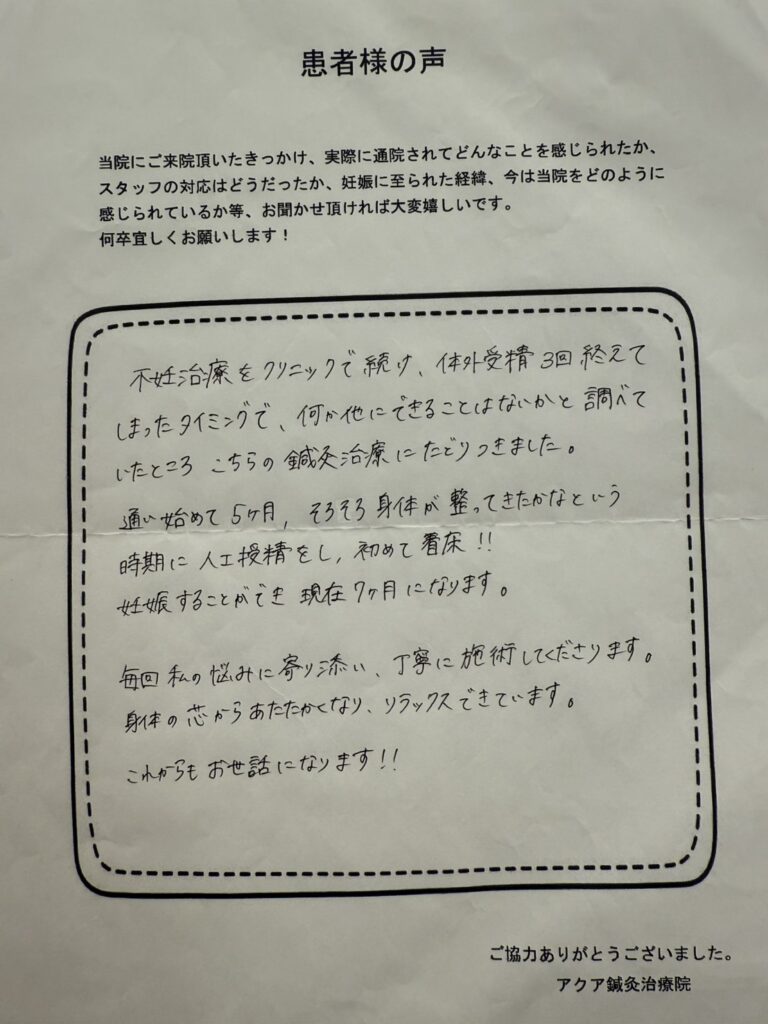 患者様の声
当院にご来院頂いたきっかけ、実際に通院されてどんなことを感じられたか、
スタッフの対応はどうだったか、妊娠に至られた経緯、今は当院をどのように
感じられているか等、お聞かせ頂ければ大変嬉しいです。
何卒宜しくお願いします！
不妊治療をクリニックで続け、体外受精3回終えて
しまったタイミングで、何か他にできることはないかと調べて
いたところ こちらの鍼灸治療にたどりつきました。
通い始めて5ヶ月、そろそろ身体が整ってきたかなという
時期に人工授精をし、初めて着床!!
妊娠することができ 現在7ヶ月になります。
毎回私の悩みに寄り添い、丁寧に施術してくださります。
身体の芯からあたたかくなり、リラックスできています。
これからもお世話になります!!
ご協力ありがとうございました。
アクア鍼灸治療院